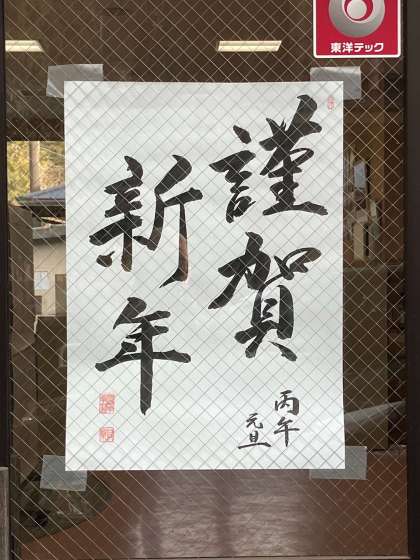 謹賀
新年
丙午
元旦
東洋テック